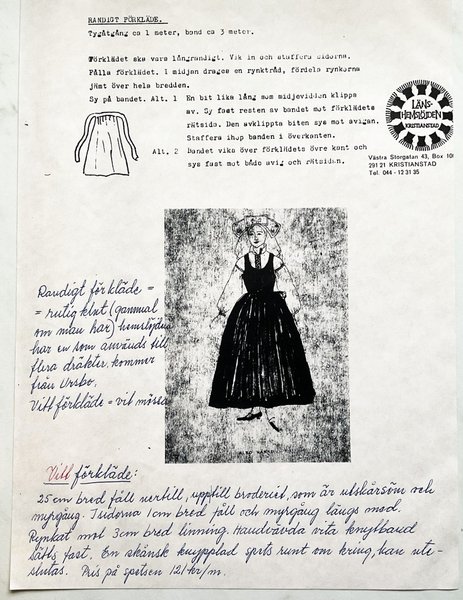 RANDIGT FÖRKLÄDE.
Tygåtgång ca 1 meter, band ca 3 meter.
Förklädet ska vara långrandigt. Vik in och staffera sidorna.
Fålla förklädet. I midjan drages en rynktråd, fördela rynkorna
jämt över hela bredden.
Sy på bandet. Alt. 1 En bit lika lång som midjevidden klipps
av. Sy fast resten av bandet mot förklädets
rätsida. Den avklippta biten sys mot avigan.
Staffera ihop banden i överkanten.
Alt. 2 Bandet viks över förklädets övre kant och
sys fast mot både avig och rätsidan.
LÄNS-
HEMSLÖJDEN
KRISTIANSTAD
Västra Storgatan 43, Box 101
291 21 KRISTIANSTAD
Tel. 044 - 12 31 35
Randigt förkläde =
= rutig klut (gammal
om man har) hemslöjden
har en som används till
flera dräkter, kommer
från
Vitt förkläde = vit mössa
Vitt förkläde:
25 cm bred fåll nertill, upptill broderiet, som är utskårsöm och
myrgång. I sidorna 1 cm bred fåll och myrgång längs med.
Rynkat mot 3 cm bred linning. Handvävda vita knytband
sätts fast. En skånsk knypplad spets runt om kring, kan ute-
slutas. Pris på spetsen 121 kr/m.